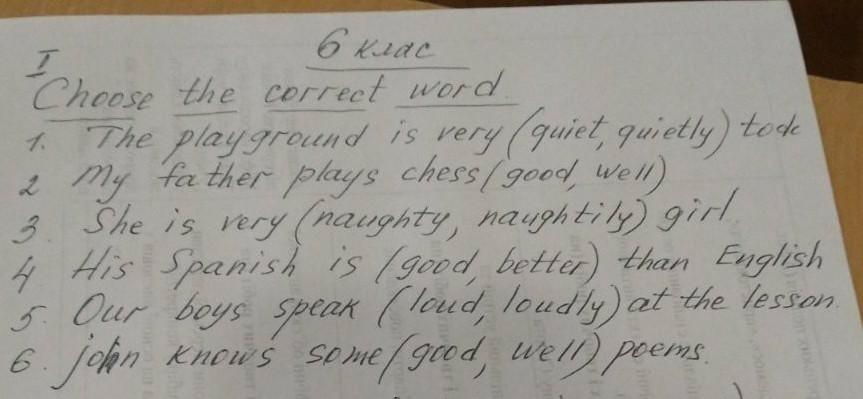 6 клас
I
Choose the correct word.
1. The playground is very (quiet, quietly)
2 My father plays chess (good, well)
3. She is very (naughty, naughtily) girl
4 His Spanish is (good, better) than English
5. Our boys speak (loud, loudly) at the lesson.
6. john knows some (good, well) poems.